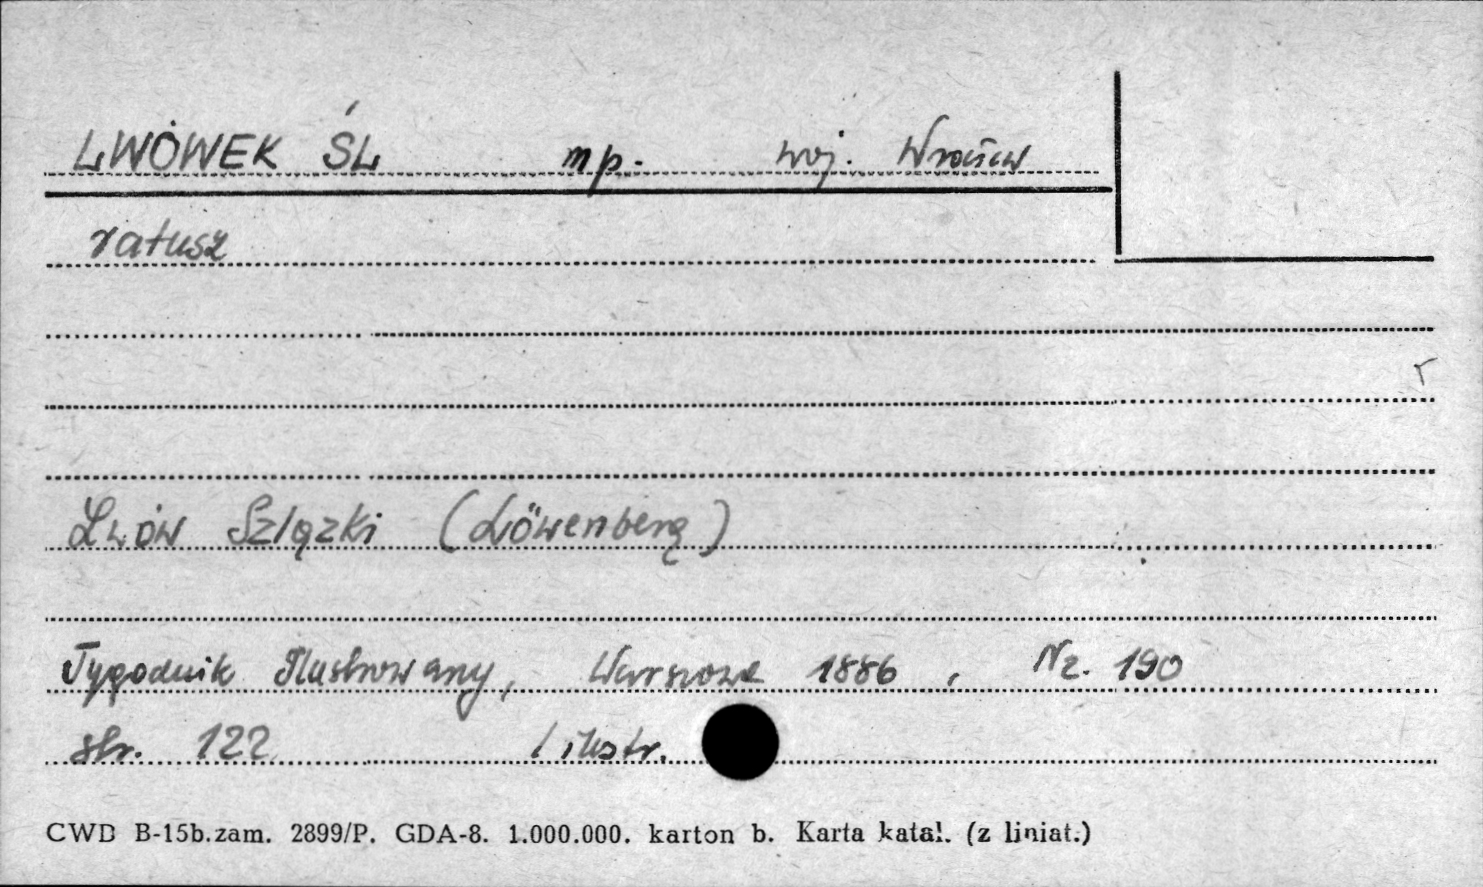 LWÓWEK ŚL mp. woj. Wrocław
ratusz
Lwów Szlązki (Löwenberg)
Tygodnik Ilustrowany, Warszawa 1886, Nr. 190
str. 122 1 ilustr.
CWD B-15b.zam. 2899/P. GDA-8. 1.000.000. karton b. Karta katal. (z liniat.)